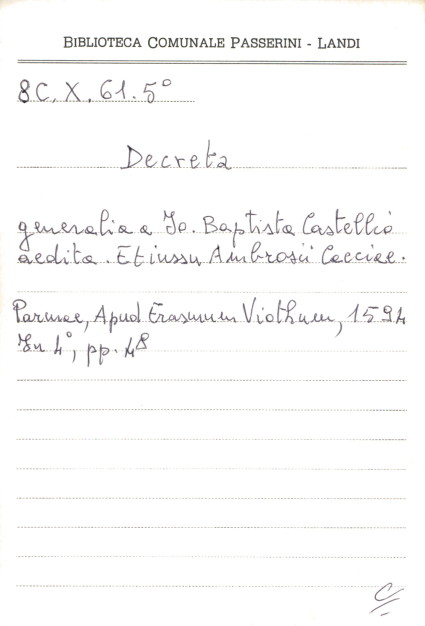 BIBLIOTECA COMUNALE PASSERINI - LANDI
8C. X. 61. 5°
Decreta
generalia a Jo. Baptista Castellio
aedita. Et iussu Ambrosii Cacciae.
Parmae, Apud Erasmum Viothum, 1594
In 4°, pp. 48
C